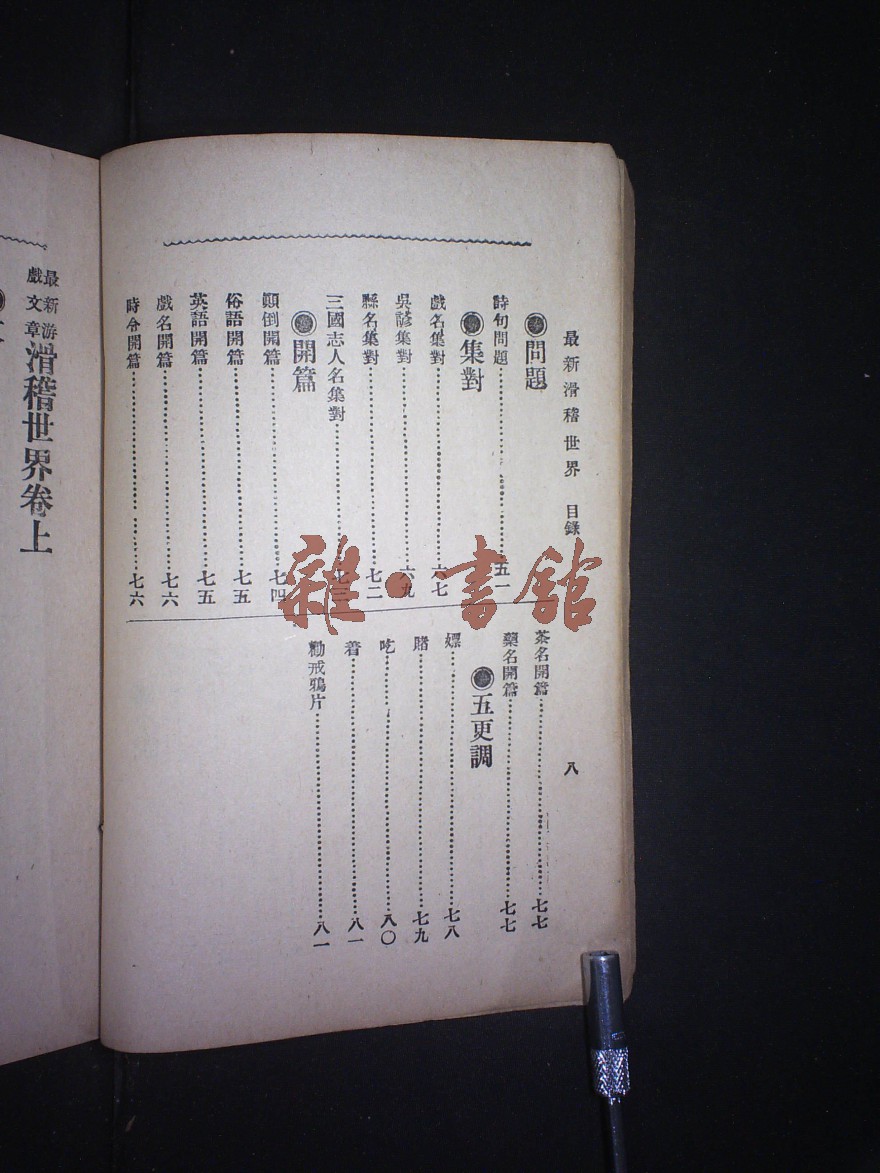 最新滑稽世界 目錄 八
問題
詩句問題……五一
集對
戲名集對……六七
吳諺集對……六九
縣名集對……七二
三國志人名集對……七三
開篇
顚倒開篇……七四
俗語開篇……七五
英語開篇……七五
戲名開篇……七六
時分開篇……七六
茶名開篇……七七
藥名開篇……七七
五更調
嫖……七八
賭……七九
吃……八〇
着……八一
勸戒鴉片……八一
最新游戲文章滑稽世界卷上
雜·書館